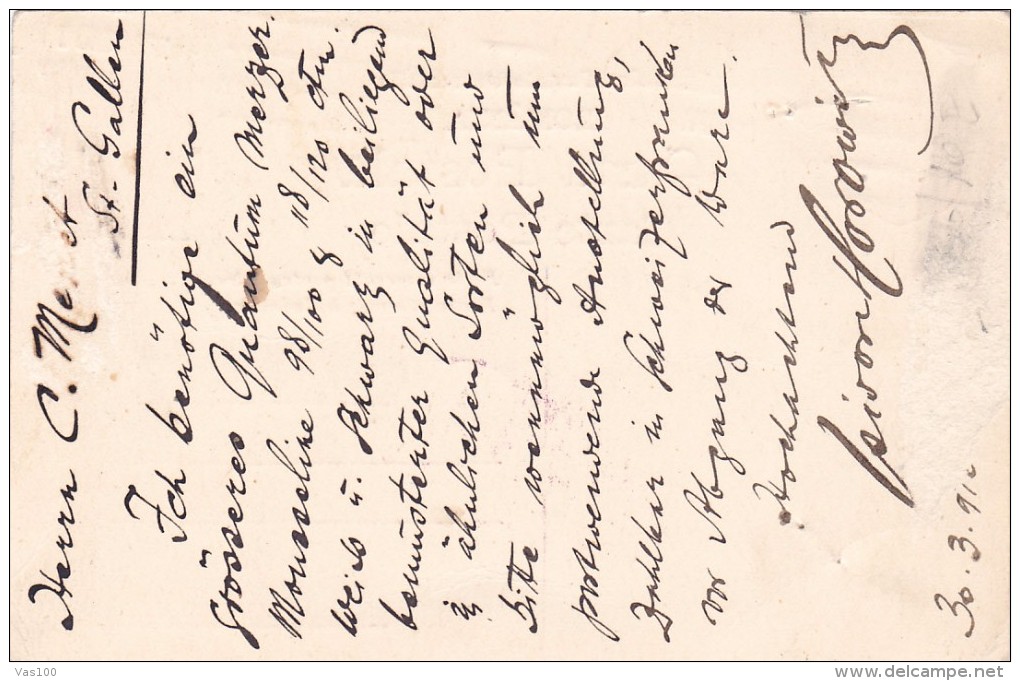 Herrn C. Menet
St. Gallen
Ich benötige ein
grösseres Quantum Merzer.
Mousseline 98/100 & 118/120 ctm.
weiss u. Schwarz in beiliegend
bemusterter Qualität oder
in ähnlichen Sorten und
bitte wenn möglich um
postwendende Anstellung,
Zahlbar in Schweizerfranken
vor Abgang der Ware.
Hochachtend
Isidor Horowitz
30.3.91.
Vas100
delcampe.net